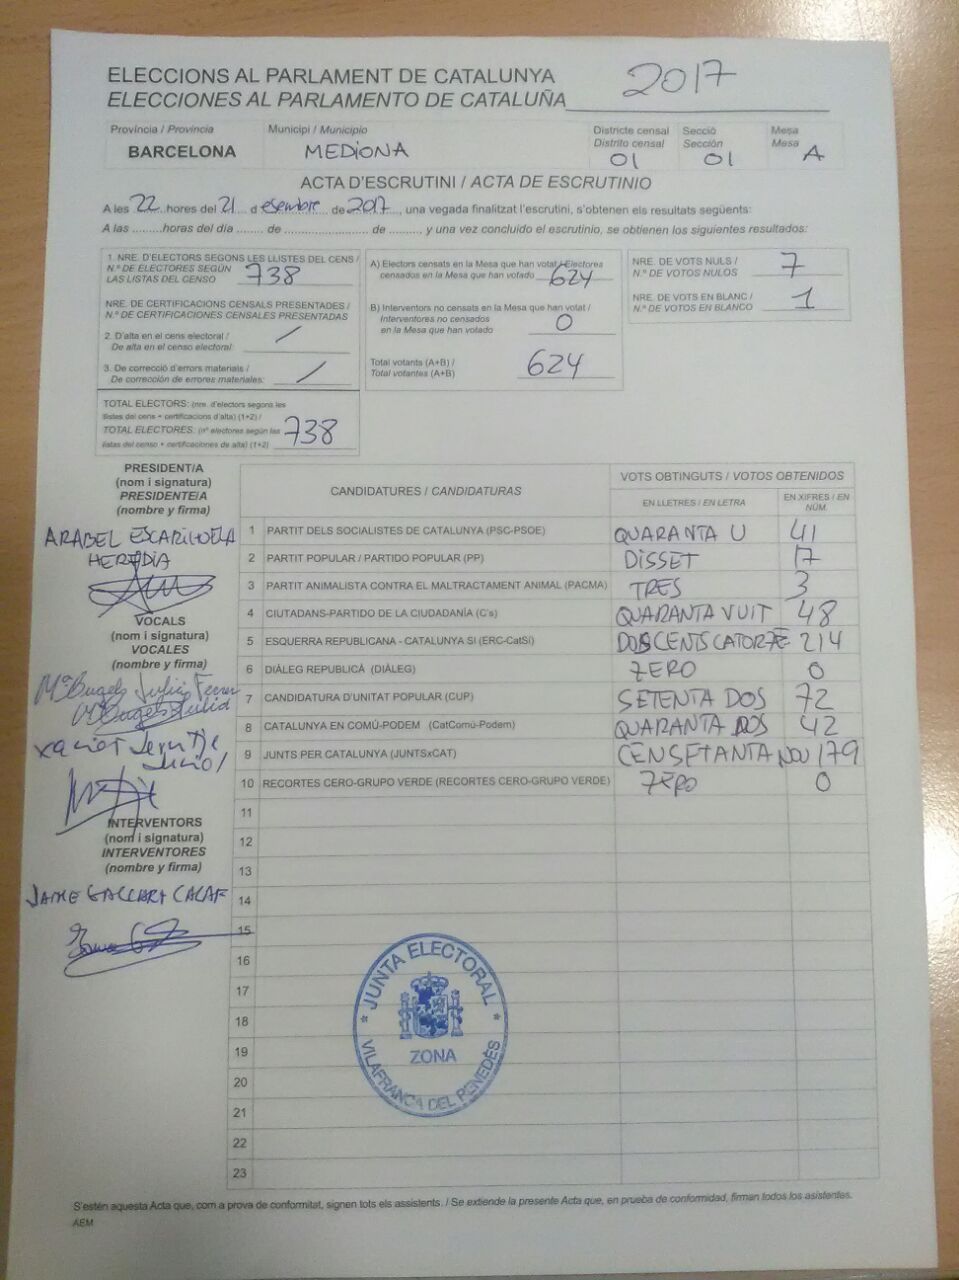 ELECCIONS AL PARLAMENT DE CATALUNYA
ELECCIONES AL PARLAMENTO DE CATALUÑA 2017
Província / Provincia
BARCELONA
Municipi / Municipio
MEDIONA
Districte censal
Distrito censal
01
Secció
Sección
01
Mesa
Mesa
A
ACTA D'ESCRUTINI / ACTA DE ESCRUTINIO
A les 22 hores del 21 d esembre de 2017, una vegada finalitzat l'escrutini, s'obtenen els resultats següents:
A las .........horas del día ........ de ........................ de ........, y una vez concluido el escrutinio, se obtienen los siguientes resultados:
1. NRE. D'ELECTORS SEGONS LES LLISTES DEL CENS /
N.º DE ELECTORES SEGÚN
LAS LISTAS DEL CENSO 738
NRE. DE CERTIFICACIONS CENSALS PRESENTADES /
N.º DE CERTIFICACIONES CENSALES PRESENTADAS
2. D'alta en el cens electoral /
De alta en el censo electoral: /
3. De correcció d'errors materials /
De corrección de errores materiales: /
TOTAL ELECTORS: (nre. d'electors segons les
llistes del cens + certificacions d'alta) (1+2) /
TOTAL ELECTORES: (nº electores según las
listas del censo + certificaciones de alta) (1+2) 738
A) Electors censats en la Mesa que han votat / Electores
censados en la Mesa que han votado 624
B) Interventors no censats en la Mesa que han votat /
Interventores no censados
en la Mesa que han votado 0
Total votants (A+B) /
Total votantes (A+B) 624
NRE. DE VOTS NULS /
N.º DE VOTOS NULOS 7
NRE. DE VOTS EN BLANC /
N.º DE VOTOS EN BLANCO 1
PRESIDENT/A
(nom i signatura)
PRESIDENTE/A
(nombre y firma)
ARABEL ESCARIHUELA
HEREDIA
VOCALS
(nom i signatura)
VOCALES
(nombre y firma)
Mª Àngels Julià Ferrer
Xavier
INTERVENTORS
(nom i signatura)
INTERVENTORES
(nombre y firma)
JAIME GALLART CALAF
CANDIDATURES / CANDIDATURAS
VOTS OBTINGUTS / VOTOS OBTENIDOS
EN LLETRES / EN LETRA
EN XIFRES / EN
NÚM.
1 PARTIT DELS SOCIALISTES DE CATALUNYA (PSC-PSOE) QUARANTA U 41
2 PARTIT POPULAR / PARTIDO POPULAR (PP) DISSET 17
3 PARTIT ANIMALISTA CONTRA EL MALTRACTAMENT ANIMAL (PACMA) TRES 3
4 CIUTADANS-PARTIDO DE LA CIUDADANÍA (C's) QUARANTA VUIT 48
5 ESQUERRA REPUBLICANA - CATALUNYA SI (ERC-CatSí) DOSCENTS CATORZE 214
6 DIÀLEG REPUBLICÀ (DIÀLEG) ZERO 0
7 CANDIDATURA D'UNITAT POPULAR (CUP) SETENTA DOS 72
8 CATALUNYA EN COMÚ-PODEM (CatComú-Podem) QUARANTA DOS 42
9 JUNTS PER CATALUNYA (JUNTSxCAT) CENSETANTA NOU 179
10 RECORTES CERO-GRUPO VERDE (RECORTES CERO-GRUPO VERDE) ZERO 0
11
12
13
14
15
16
17
18
19
20
21
22
23
* JUNTA ELECTORAL *
ZONA
VILAFRANCA DEL PENEDÈS
S'estén aquesta Acta que, com a prova de conformitat, signen tots els assistents. / Se extiende la presente Acta que, en prueba de conformidad, firman todos los asistentes.
AEM